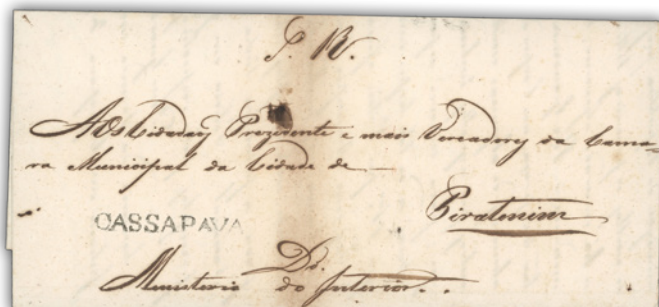 Aos Cidadãos Prezidente e mais Vereadores da Cama=
ra Municipal da Cidade de
Piratinim
CASSAPAVA
Do
Ministerio do Interior.